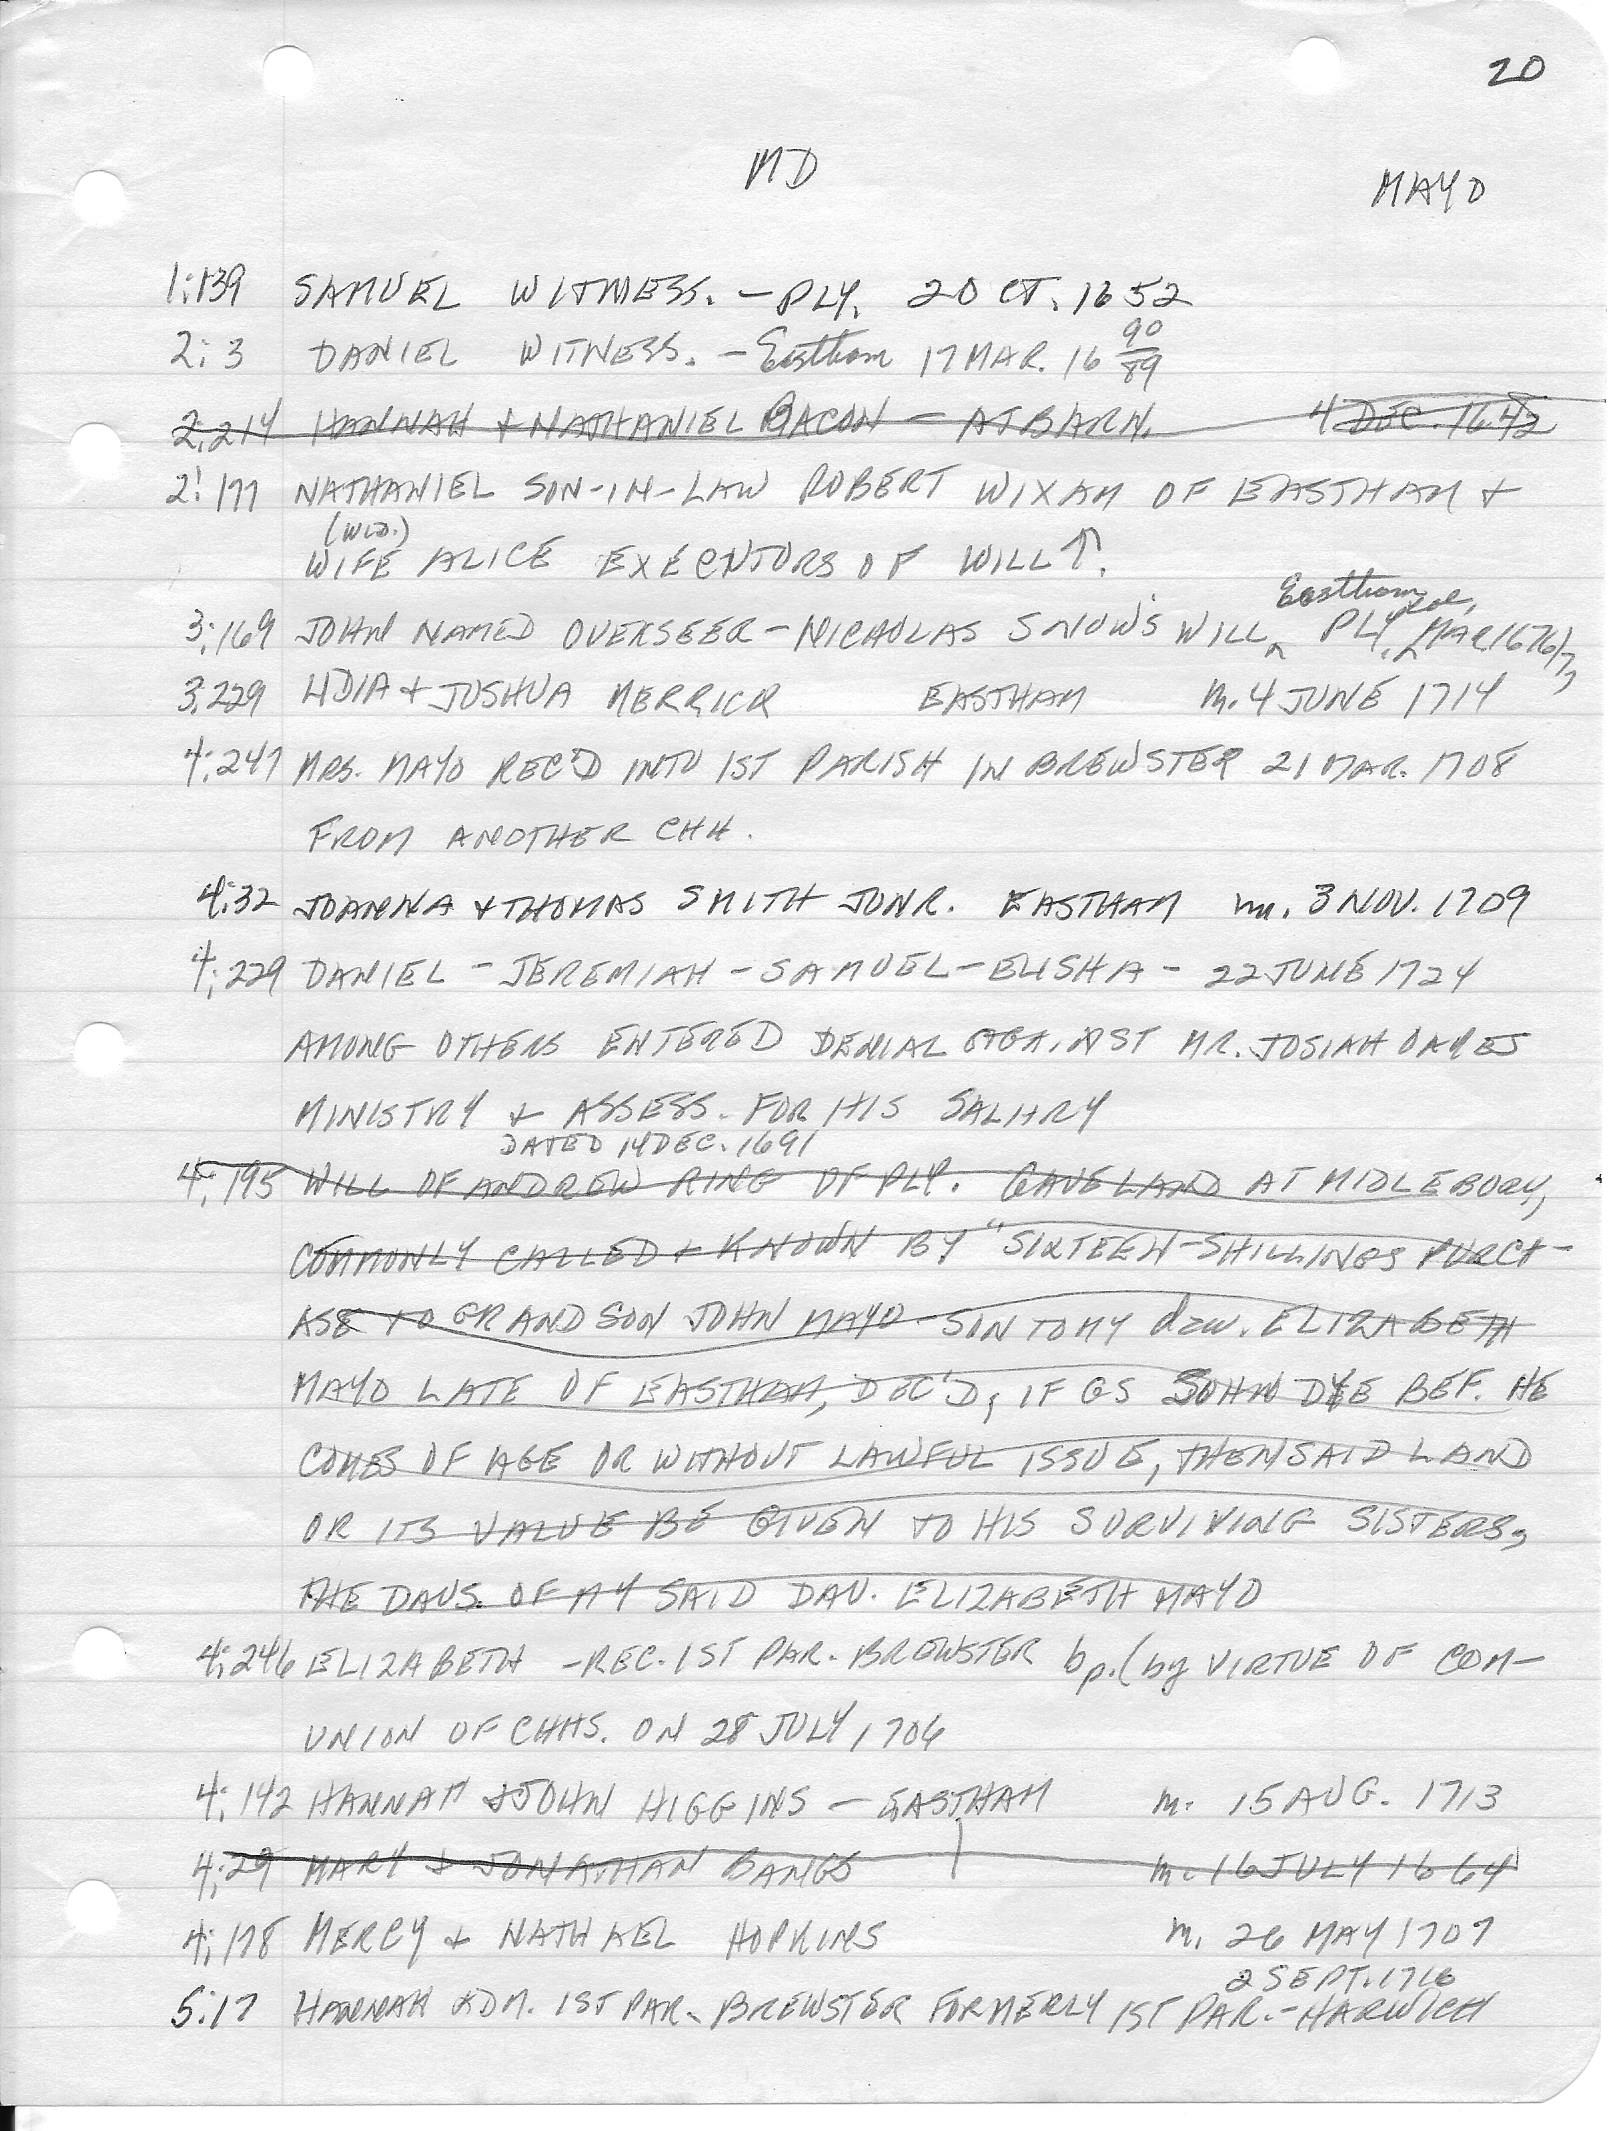 20
MD
MAYO
1:139 SAMUEL WITNESS. - PLY. 20 CT. 1652
2:3 DANIEL WITNESS. - Eastham 17 MAR. 16 90/89
2:214 HANNAH + NATHANIEL BACON - AT BARN. 4 DEC. 1642
2:177 NATHANIEL SON-IN-LAW ROBERT WIXAM OF EASTHAM +
(WID.)
WIFE ALICE EXECUTORS OF WILL ↑.
Eastham
3:169 JOHN NAMED OVERSEER - NICHOLAS SNOW'S WILL, PLY. Col. MAR 1676/7
3:229 LIDIA + JOSHUA MERRICK EASTHAM m. 4 JUNE 1714
4:247 MRS. MAYO REC'D INTO 1ST PARISH IN BREWSTER 21 MAR. 1708
FROM ANOTHER CHH.
4:32 JOANNA + THOMAS SMITH JUNR. EASTHAM m. 3 NOV. 1709
4:229 DANIEL - JEREMIAH - SAMUEL - ELISHA - 22 JUNE 1724
AMONG OTHERS ENTERED DENIAL AGAINST MR. JOSIAH OAKES
MINISTRY + ASSESS. FOR HIS SALARY
DATED 14 DEC. 1691
4:195 WILL OF ANDREW RING OF PLY. GAVE LAND AT MIDLEBURY,
COMMONLY CALLED + KNOWN BY "SIXTEEN-SHILLINGS PURCH-
ASE TO GRANDSON JOHN MAYO - SON TO MY dau. ELIZABETH
MAYO LATE OF EASTHAM, DEC'D; IF GS JOHN DYE BEF. HE
COMES OF AGE OR WITHOUT LAWFUL ISSUE, THEN SAID LAND
OR ITS VALUE BE GIVEN TO HIS SURVIVING SISTERS,
THE DAUS. OF MY SAID DAU. ELIZABETH MAYO
4:246 ELIZABETH - REC. 1ST PAR. BREWSTER bp. (by VIRTUE OF COM-
UNION OF CHHS. ON 28 JULY 1706
4:142 HANNAH + JOHN HIGGINS - EASTHAM m. 15 AUG. 1713
4:29 MARY + JONATHAN BANGS m. 16 JULY 1664
4:178 MERCY + NATHAEL HOPKINS m. 26 MAY 1707
2 SEPT. 1716
5:17 HANNAH ADM. 1ST PAR. BREWSTER FORMERLY 1ST PAR. - HARWICH